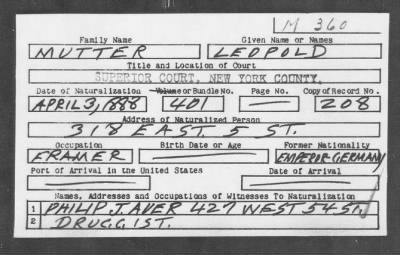 M 360
Family Name Given Name or Names
MUTTER LEOPOLD
Title and Location of Court
SUPERIOR COURT, NEW YORK COUNTY.
Date of Naturalization Volume or Bundle No. Page No. Copy of Record No.
APRIL 3, 1888 401 — 208
Address of Naturalized Person
318 EAST 5 ST.
Occupation Birth Date or Age Former Nationality
FRAMER — EMPEROR-GERMANY
Port of Arrival in the United States Date of Arrival
— —
Names, Addresses and Occupations of Witnesses To Naturalization
1 PHILIP. J. AUER 427 WEST 54 ST.
2 DRUGGIST.